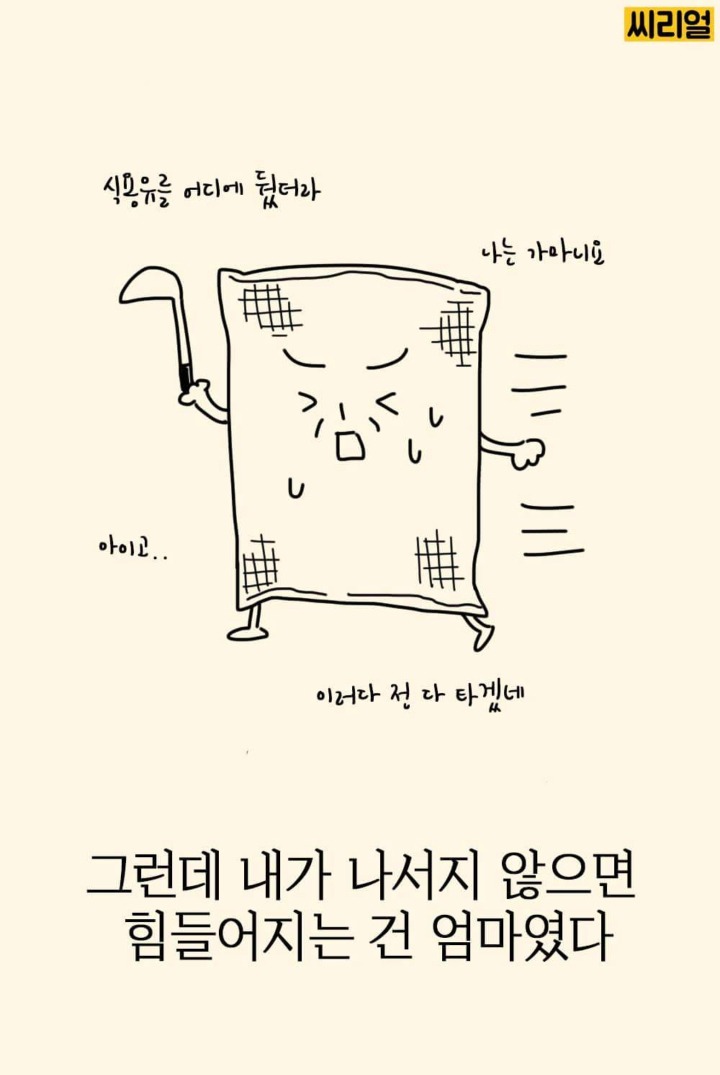 씨리얼
식용유를 어디에 뒀더라
나는 가마니요
아이고..
이러다 전 다 타겠네
그런데 내가 나서지 않으면
힘들어지는 건 엄마였다